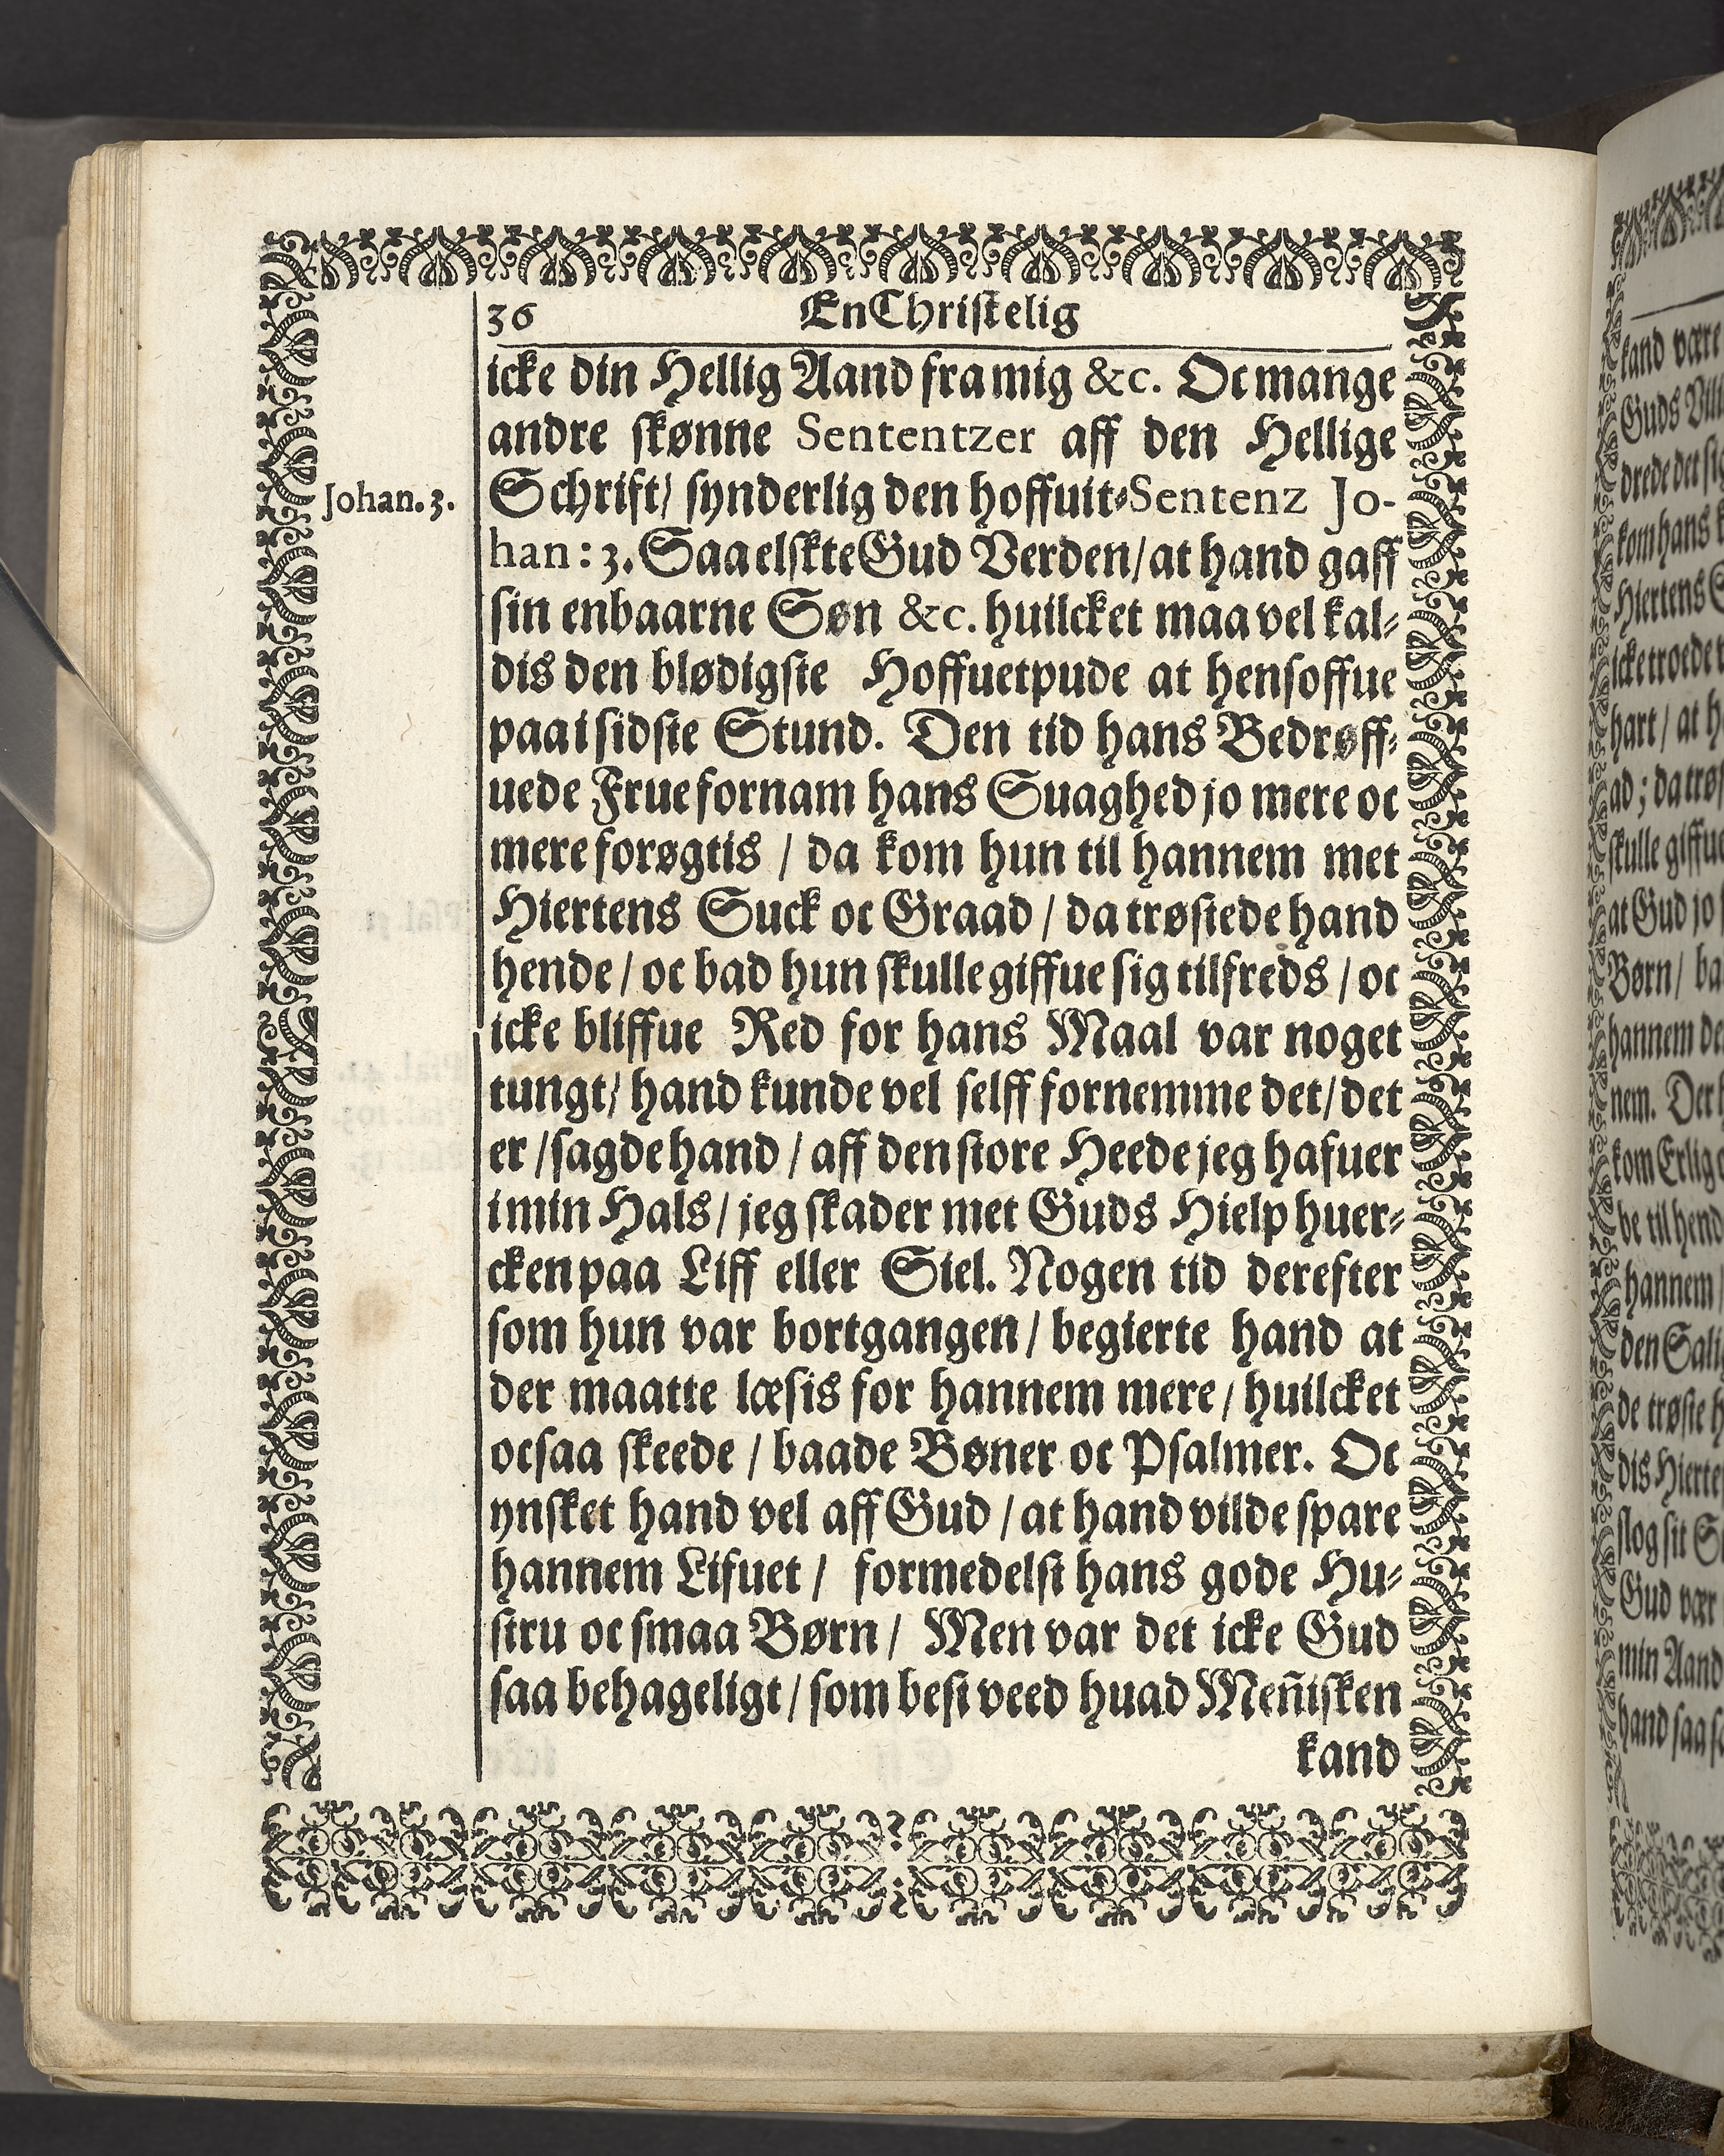 36 En Christelig
icke din Hellig Aand fra mig &c. Oc mange
andre skønne Sententzer aff den Hellige
Johan. 3.
Schrift/ synderlig den hoffuit-Sentenz Jo-
han: 3. Saa elskte Gud Verden/ at hand gaff
sin enbaarne Søn &c. huilcket maa vel kal-
dis den blødigste Hoffuetpude at hensoffue
paa i sidste Stund. Den tid hans Bedrøff-
uede Frue fornam hans Suaghed jo mere oc
mere forøgtis / da kom hun til hannem met
Hiertens Suck oc Graad / da trøstede hand
hende / oc bad hun skulle giffue sig tilfreds / oc
icke bliffue Red for hans Maal var noget
tungt/ hand kunde vel selff fornemme det/ det
er / sagde hand / aff den store Heede jeg hafuer
i min Hals / jeg skader met Guds Hielp huer-
cken paa Liff eller Siel. Nogen tid derefter
som hun var bortgangen / begierte hand at
der maatte læsis for hannem mere / huilcket
ocsaa skeede / baade Bøner oc Psalmer. Oc
ynsket hand vel aff Gud / at hand vilde spare
hannem Lifuet / formedelst hans gode Hu-
stru oc smaa Børn / Men var det icke Gud
saa behageligt / som best veed huad Meñisken
kand
kand være
Guds
drede det
kom hans
Hiertens
icke troede
hart / at
ad ; da
skulle
at Gud jo
Børn /
hannem
nem.
kom Erlig
be til
hannem /
den
de trøste
dis
slog sit
Gud vær
min Aand
hand saa